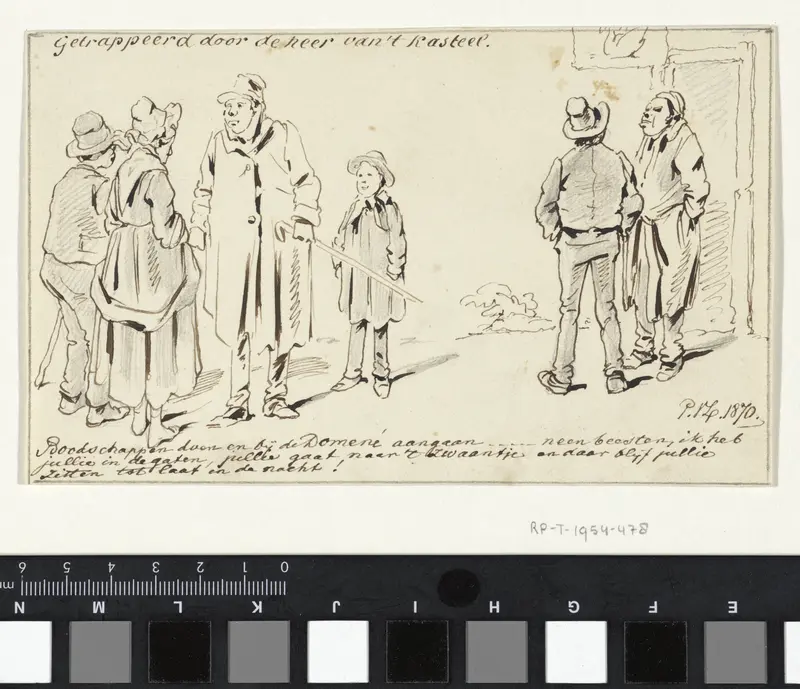 Getrappeerd door de heer van't Kasteel.
P.V.Z. 1870.
Boodschappen doen en bij de Domené aangaan ..... neen beesten, ik heb
jullie in de gaten, jullie gaat naar 't Zwaantje en daar blijf jullie
zitten tot laat in de nacht!
RP-T-1954-478
6 5 4 3 2 1 0
mm
N M L K J I H G F E